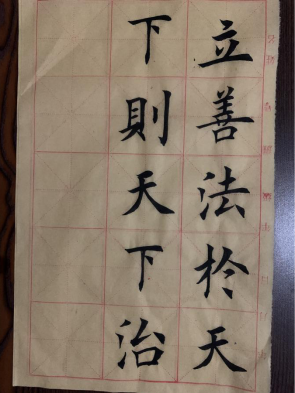 立善法於天
下則天下治